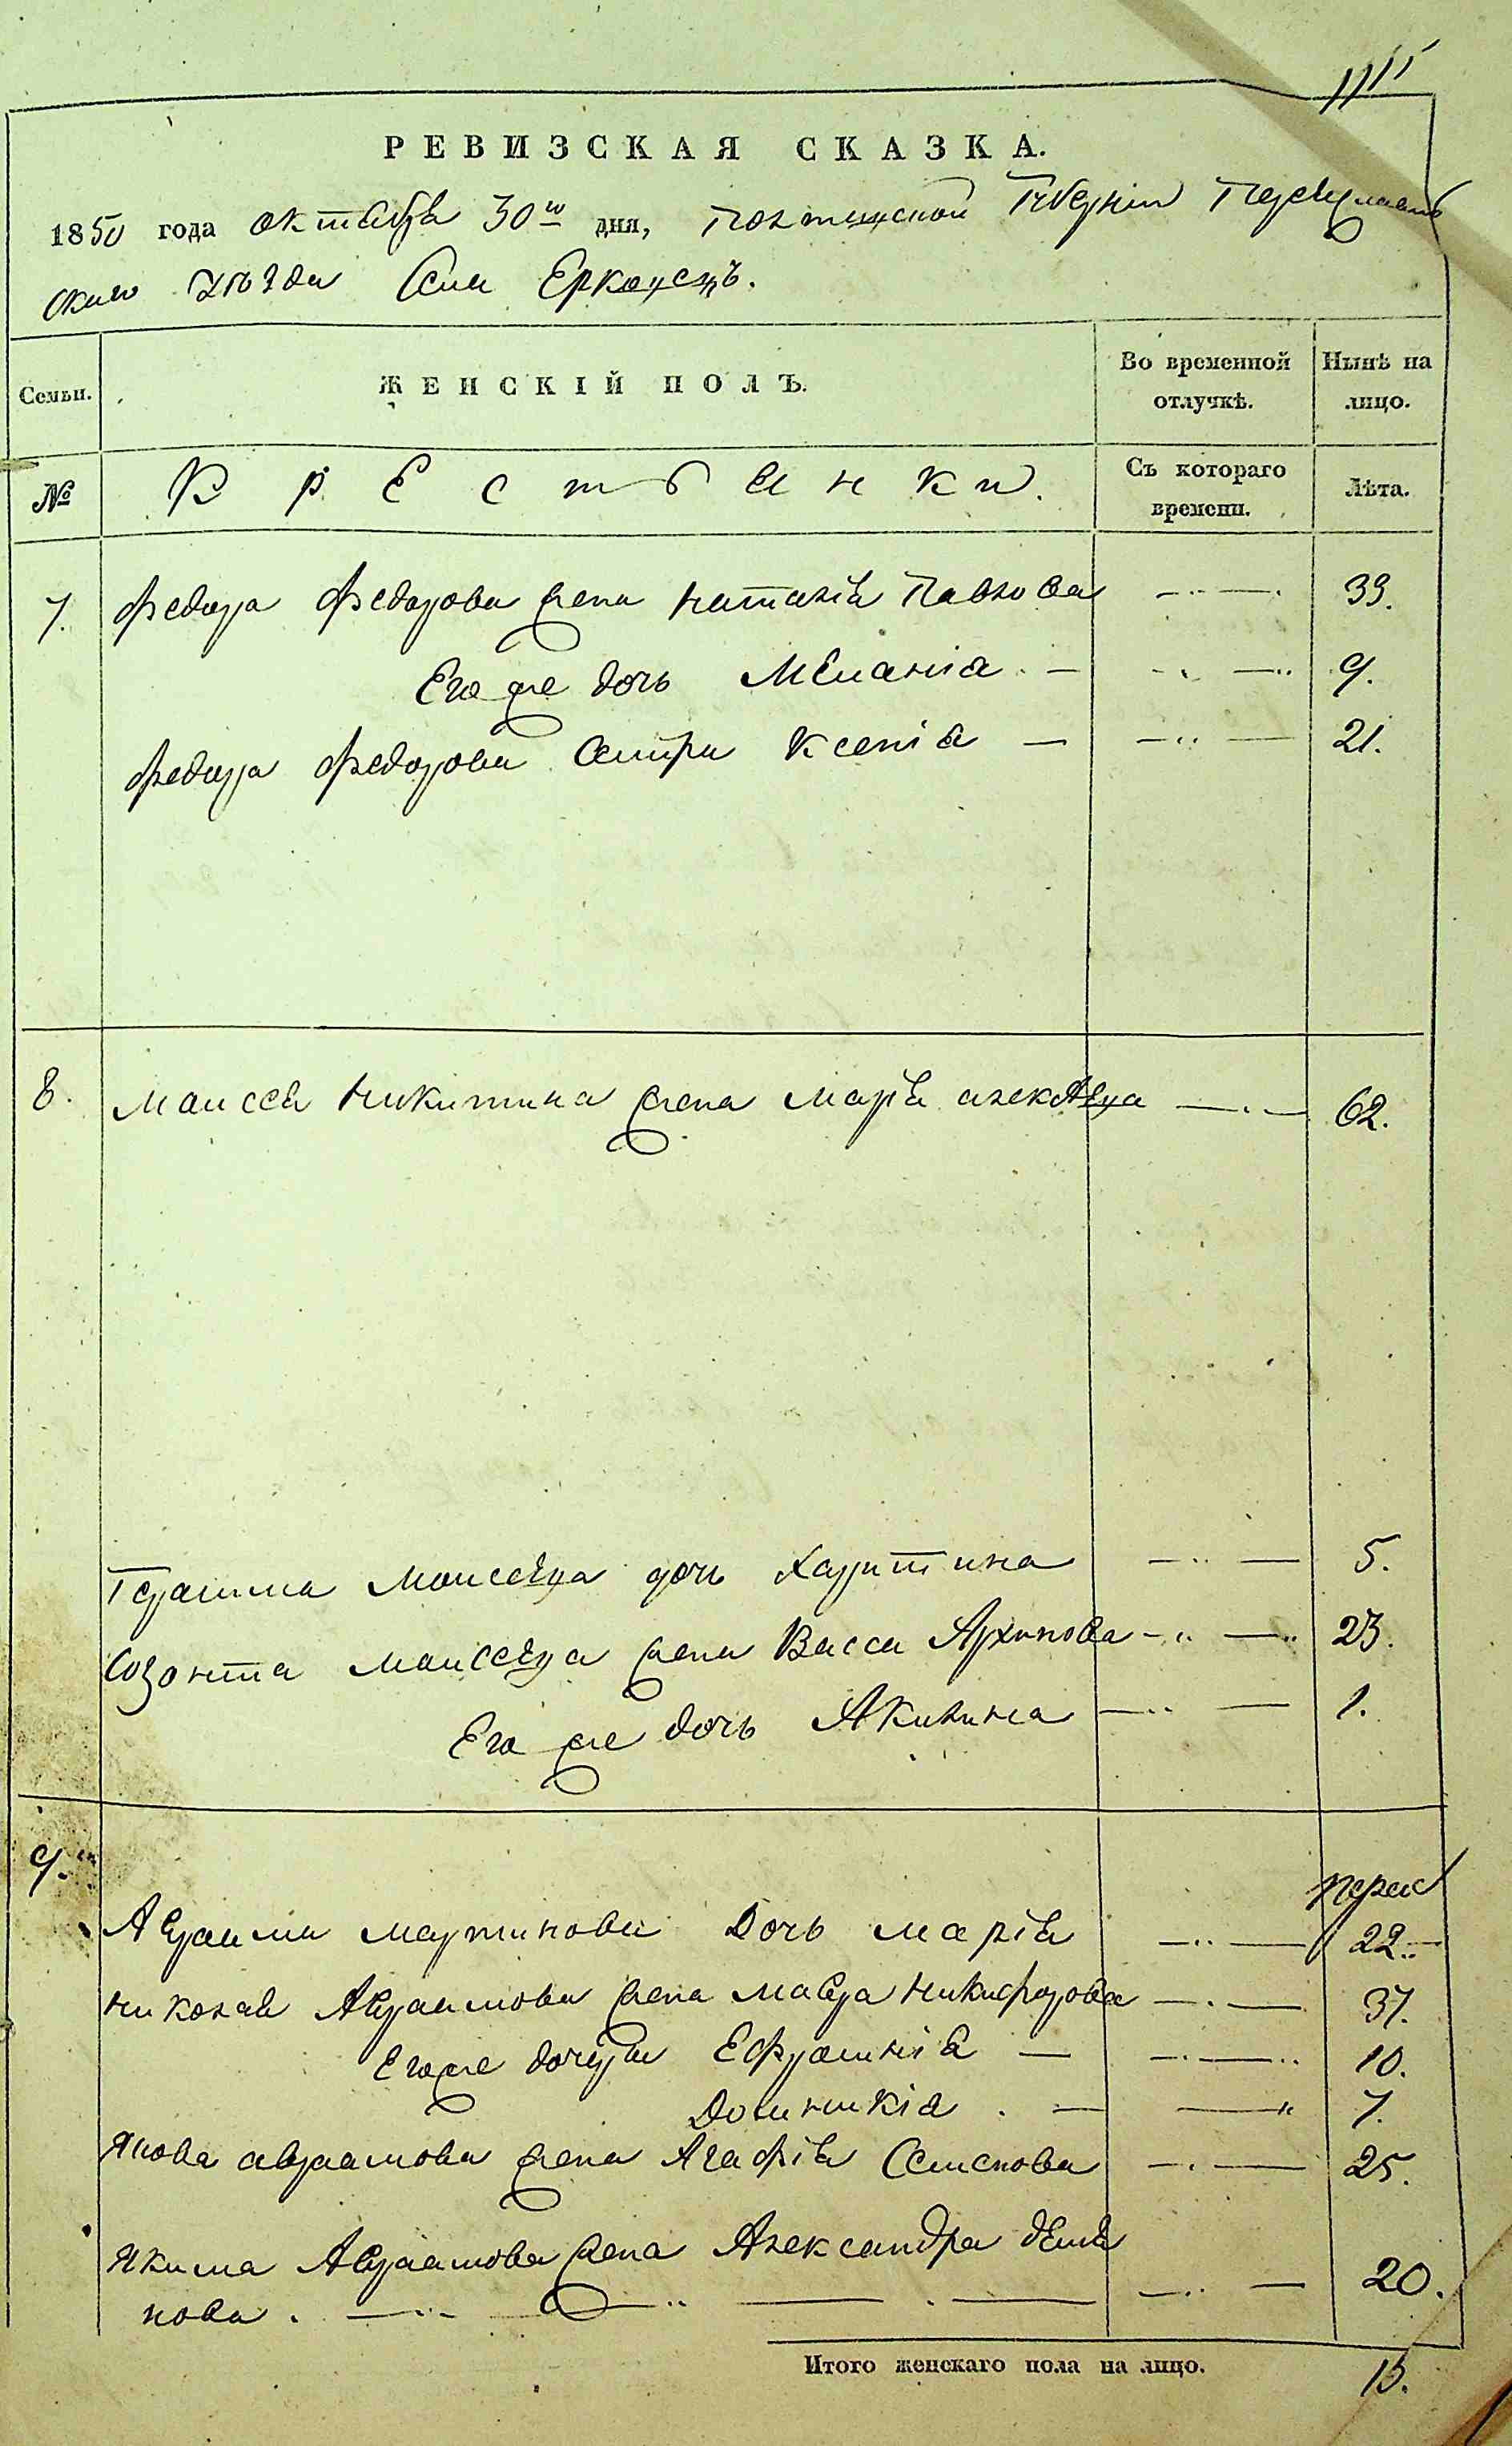 РЕВИЗСКАЯ СКАЗКА.
1850 года октября 30го дня, Полтавской Губерніи Переяславь
скаго уѣзда Села Ерковецъ.
Семьи. ЖЕНСКІЙ ПОЛЪ. Во временной отлучкѣ. Нынѣ на лицо.
№ Крестьянки. Съ котораго времени. Лѣта.
7. Федора Федорова жена Наталія Павлова 33.
Его же дочь Меланія 9.
Федора Федорова Сестра Ксенія 21.
8. Моисея Никитина жена Марія Алексѣева 62.
Герасима Моисеева дочь Харитина 5.
Созонта Моисеева жена Васса Архипова 23.
Его же дочь Акилина 1.
9.
Авраама Мартинова Дочь Марія 22.
Николая Авраамова жена Мавра Никифорова 37.
Его же дочери Ефросинія 10.
Доминикія 7.
Якова Авраамова жена Агафія Семенова 25.
Якима Авраамова жена Александра Демя
нова 20.
Итого женскаго пола на лицо. 13.